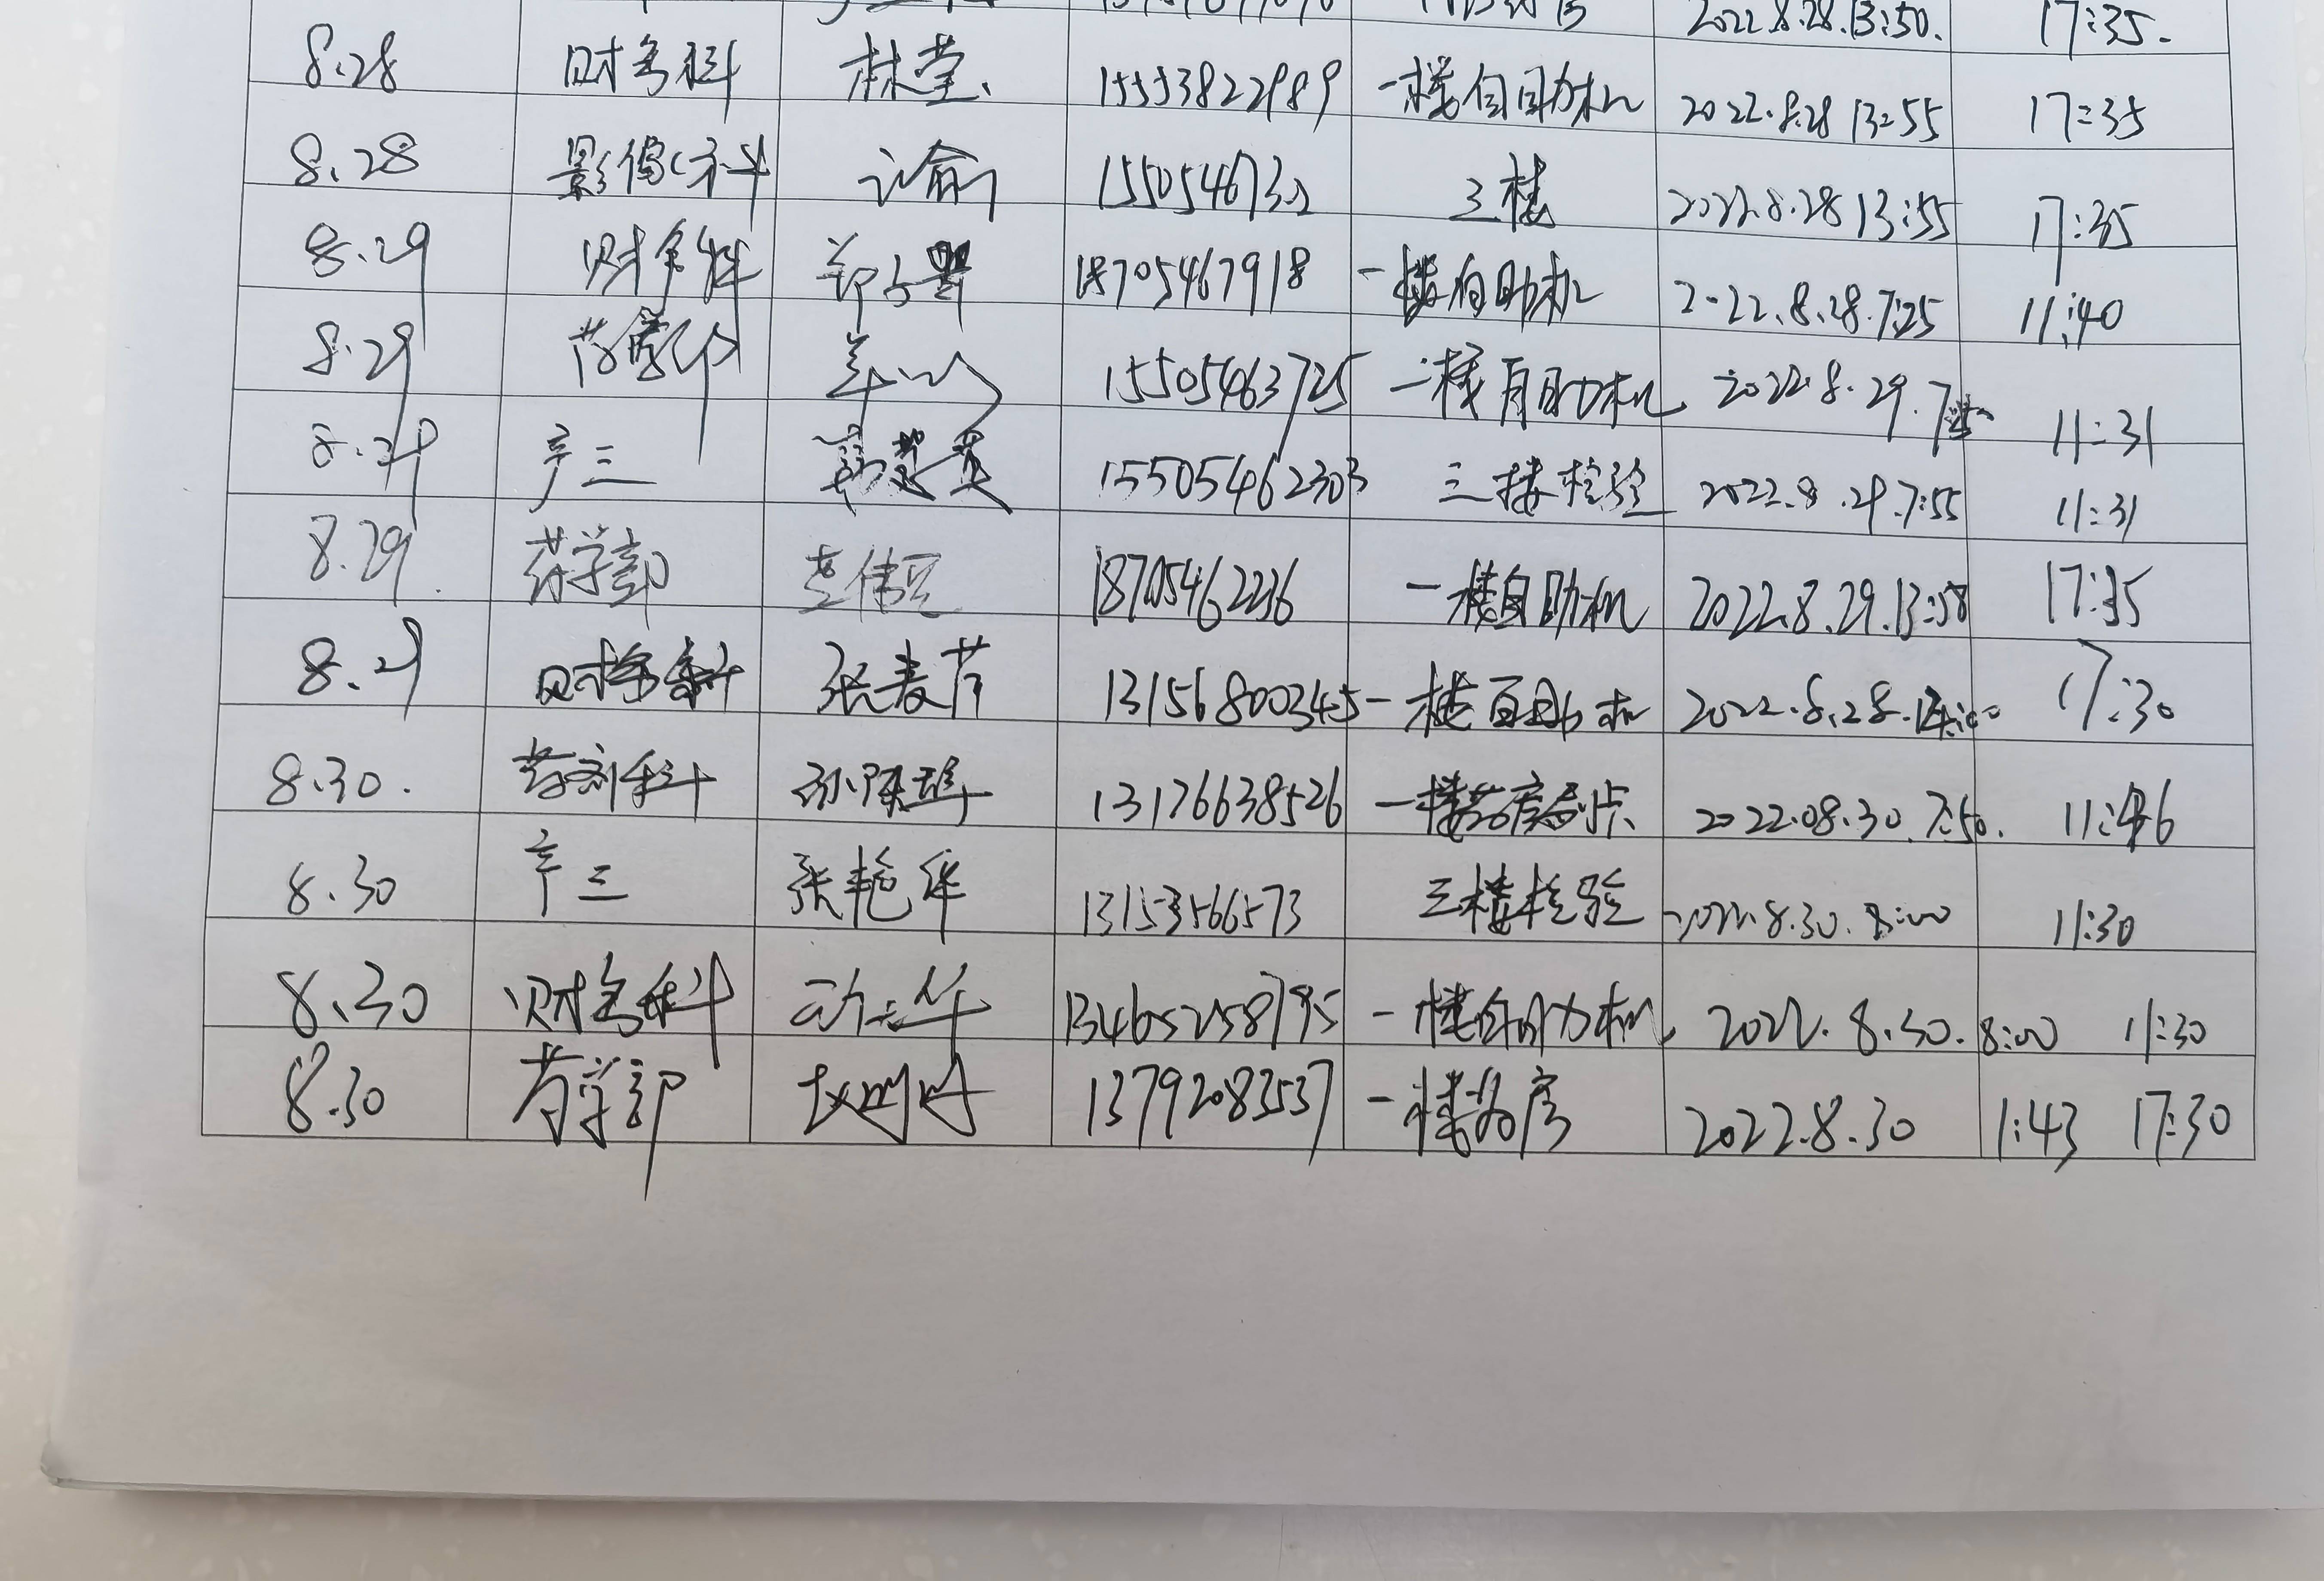 2022.8.28.13:50. 17:35.
8.28 财务科 林莹 15553822989 一楼自助机 2022.8.28 13:55 17:35
8.28 影像科 三楼 2022.8.28 13:55 17:35
8.29 财务科 18705467918 一楼自助机 2022.8.28.7:25 11:40
8.29 药学部 15505463725 一楼自助机 2022.8.29. 11:31
8.29 产三 15505462303 三楼检验 2022.8.29.7:55 11:31
8.29 药学部 18705462236 一楼自助机 2022.8.29.13:58 17:35
8.29 财务科 张麦芹 13156800345 一楼自助机 2022.8.28.14:00 17:30
8.30. 药剂科 13176638526 一楼药房 2022.08.30.7:50. 11:46
8.30 产三 张艳华 13153566573 三楼检验 2022.8.30.8:00 11:30
8.30 财务科 一楼自助机 2022.8.30.8:00 11:30
8.30 药学部 13792083537 一楼药房 2022.8.30 1:43 17:30